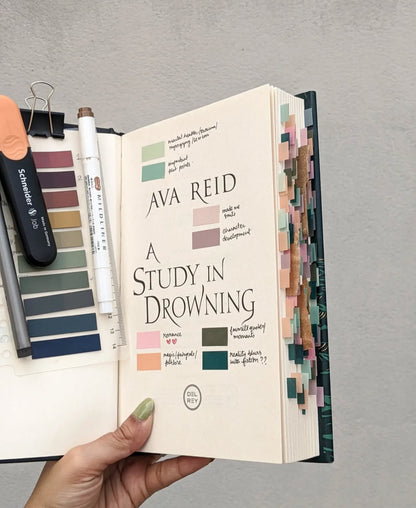 mental health/trauma/
misogyny/sexism
important
plot points
AVA REID
make me
character
development
A
STUDY IN
DROWNING
romance
favourite quotes/
moments
magic/fairytale/
folklore
reality blurs
into fiction??
DEL
REY
Schneider Job
MILDLINER